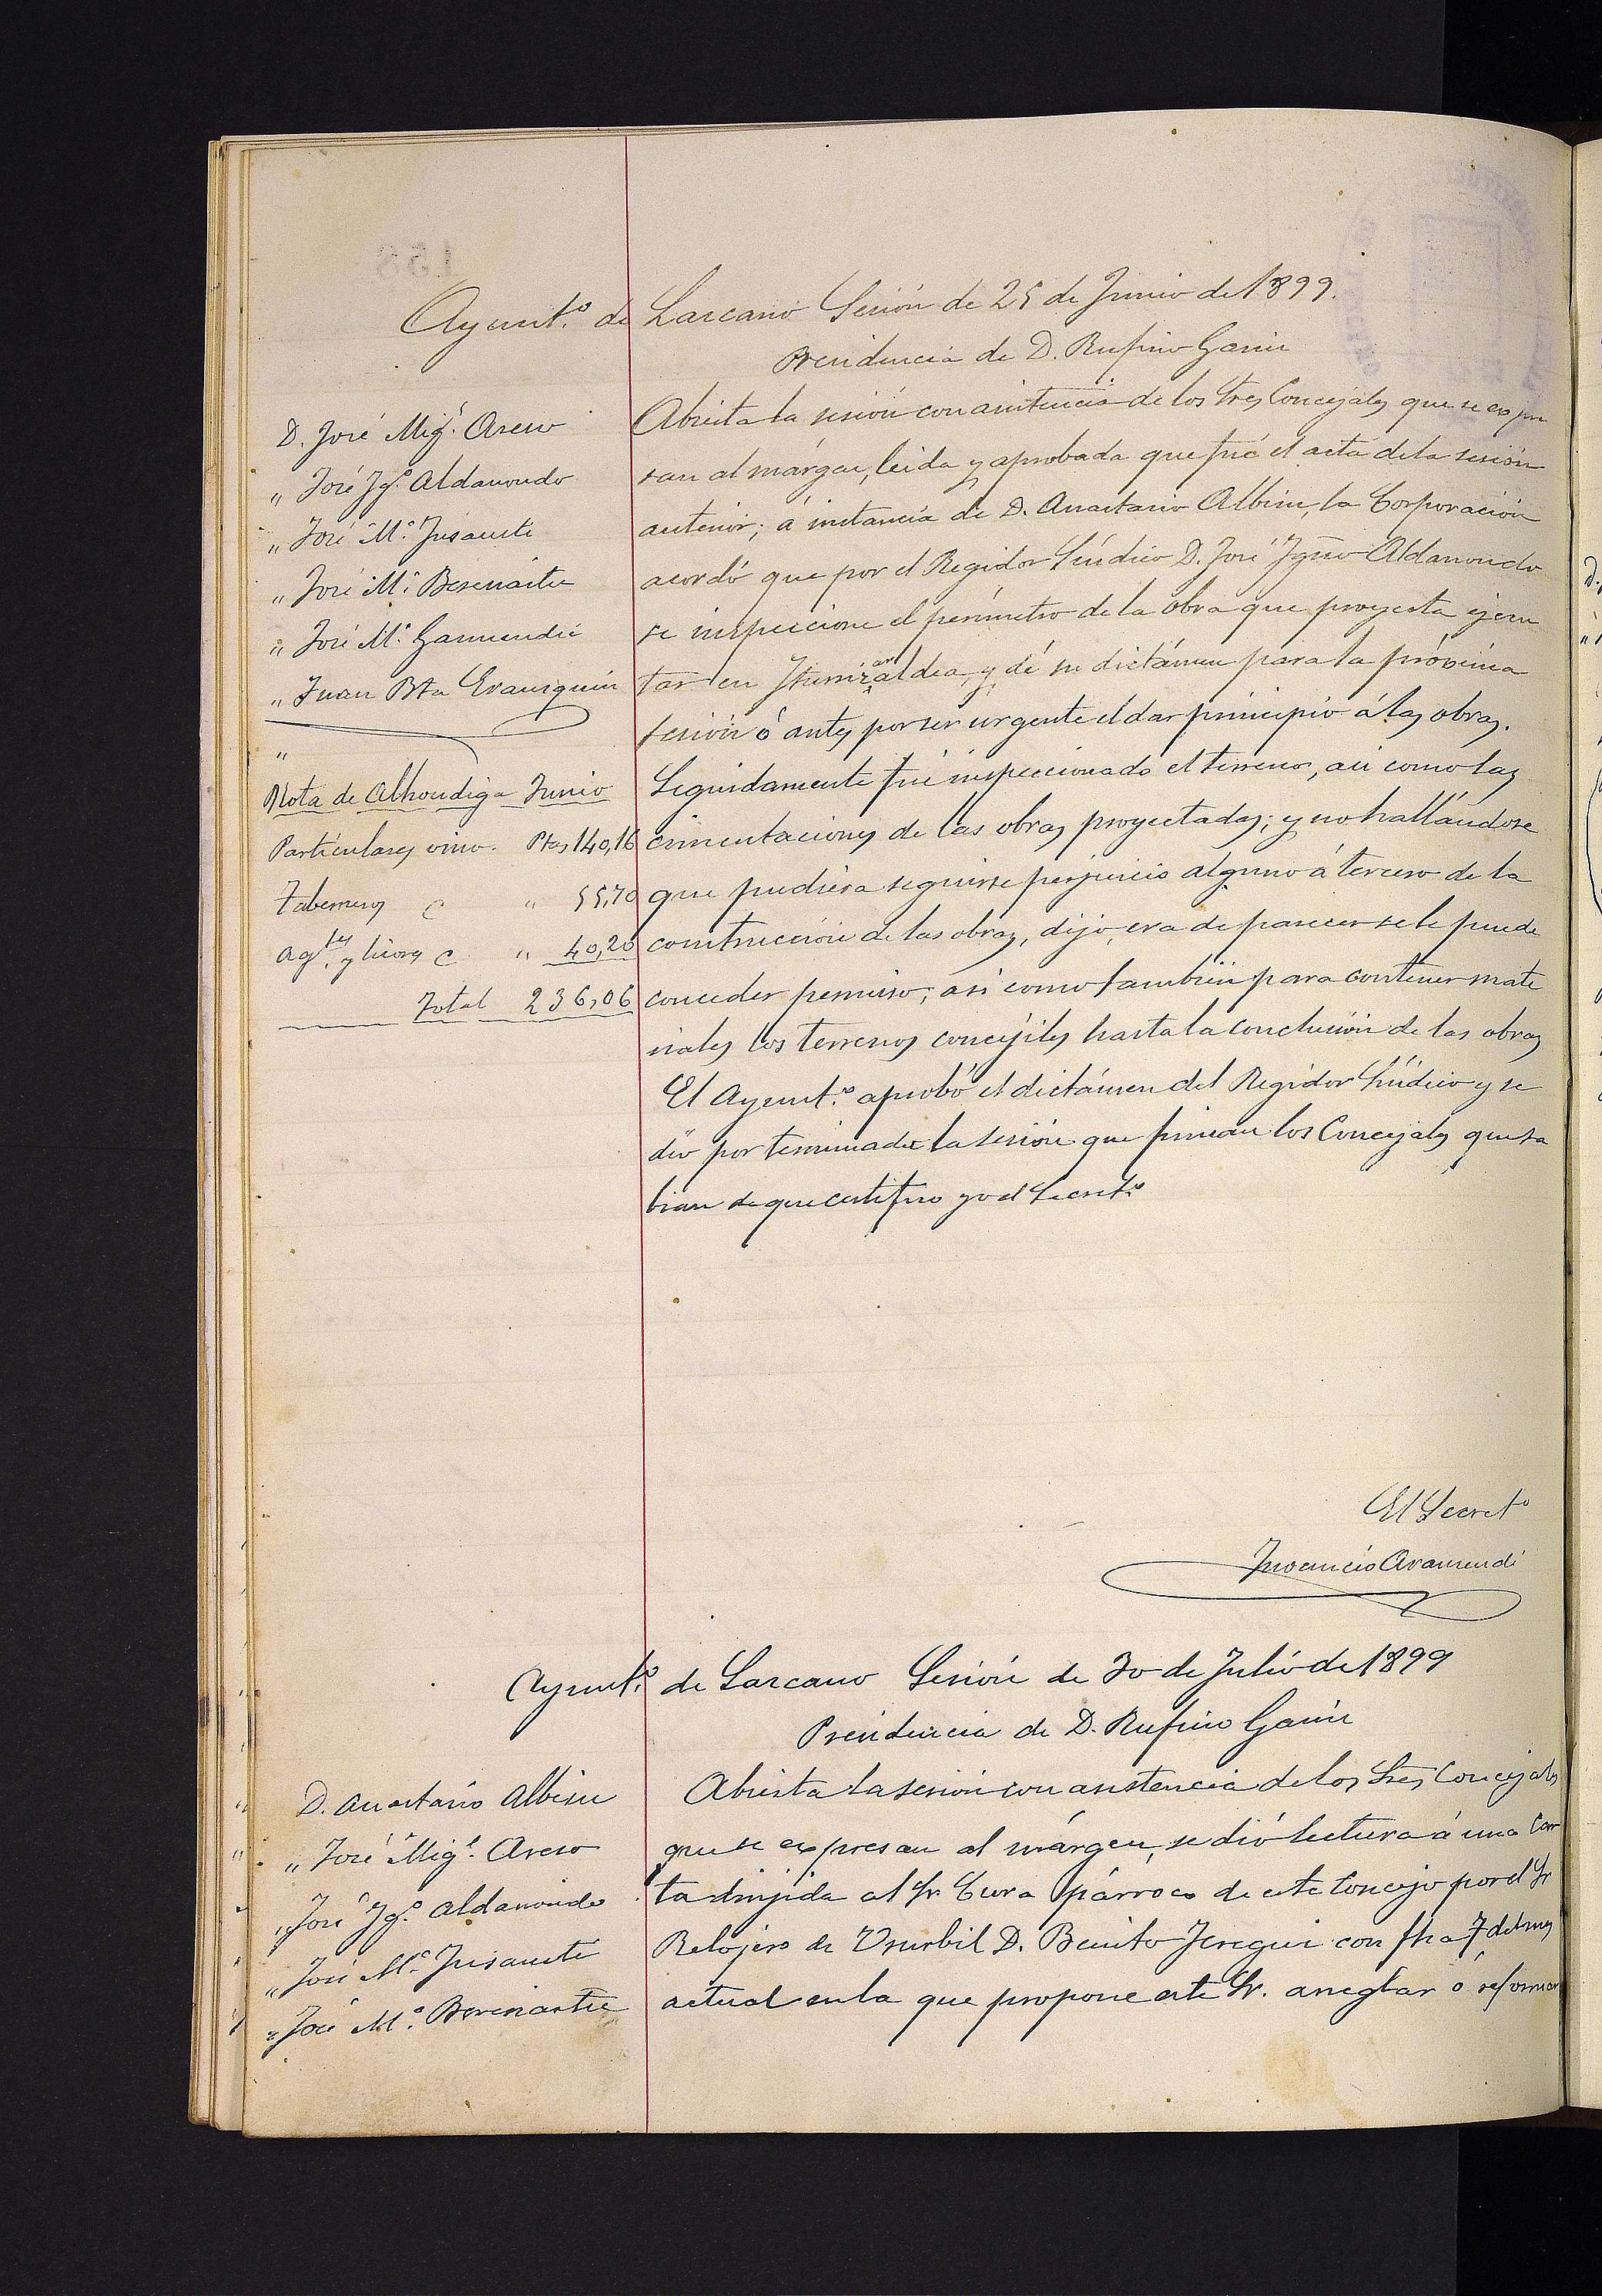 Ayunt.º de Lazcano Sesión de 25 de Junio de 1899.
Presidencia de D. Rufino Garin
D. José Mig.l Areso
„ José Ig.º Aldanondo
„ José M.ª Insausti
„ José M.ª Berenaitu
„ José M.ª Garmendia
„ Juan Bta Erausquin
„
Nota de Alhondiga Junio
Particulares vino. Ptas 140,16
Taberneros C „ 55,70
Ag.tes y licores C „ 40,20
Total 236,06
Abierta la sesión con asistencia de los Sres Concejales que se expre
san al márgen, leida y aprobada que fué el acta de la sesión
anterior; á instancia de D. Anastasio Albisu, la Corporación
acordó que por el Regidor Síndico D. José Ignº Aldanondo
se inspeccione el perímetro de la obra que proyecta ejecu
tar en aldea, y dé su dictámen para la próxima
sesión ó antes por ser urgente el dar principio á las obras.
Seguidamente fué inspeccionado el terreno, asi como las
cimentaciones de las obras proyectadas; y no hallándose
que pudiera seguirse perjuicio alguno á tercero de la
construcción de las obras, dijo, era de parecer se le puede
conceder permiso; asi como tambien para contener mate
riales los terrenos concejiles hasta la conclusión de las obras
El Ayunt.º aprobó el dictámen del Regidor Síndico y se
dió por terminada la sesión que firman los Concejales que sa
bian de que certifico yo el Secret.º
El Secretº
Inocencio Aramendi
Ayunt.º de Lazcano Sesión de 30 de Julio de 1899
Presidencia de D. Rufino Garin
D. Anastasio Albisu
„ José Mig.l Areso
„ José Ig.º Aldanondo
„ José M.ª Insausti
„ José M.ª Berenaitu
Abierta la sesión con asistencia de los Sres Concejales
que se expresan al márgen, se dió lectura á una Car
ta dirijida al Sr Cura párroco de este Concejo por el Sr
Relojero de Usurbil D. Benito Jeregui con fha 7 del mes
actual en la que propone este Sr. arreglar ó reformar